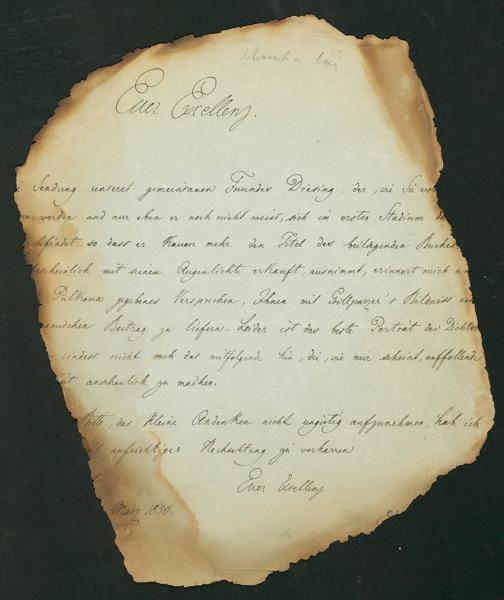 Euer Excellenz.
Sendung unseres gemeinsamen Freundes Diesing, der, wie Sie wo
werden und nur eben er noch nicht weiss, sich im ersten Stadium de
befindet, so dass er kaum mehr den Titel des beiliegenden Buches
scheinlich mit seinem Augenlichte erkauft, ausnimmt, erinnert mich an
Pulkowa gegebenes Versprechen, Ihnen mit Grillparzer's Bildniss
nomischen Beitrag zu liefern. Leider ist das beste Porträt des Dichte
indess reicht auch das mitfolgende hin, die, wie mir scheint, auffallende
keit anschaulich zu machen.
Bitte, das kleine Andenken nicht ungütig aufzunehmen, hab ich
aufrichtiger Hochachtung zu verharren
Euer Excellenz
März 1850.